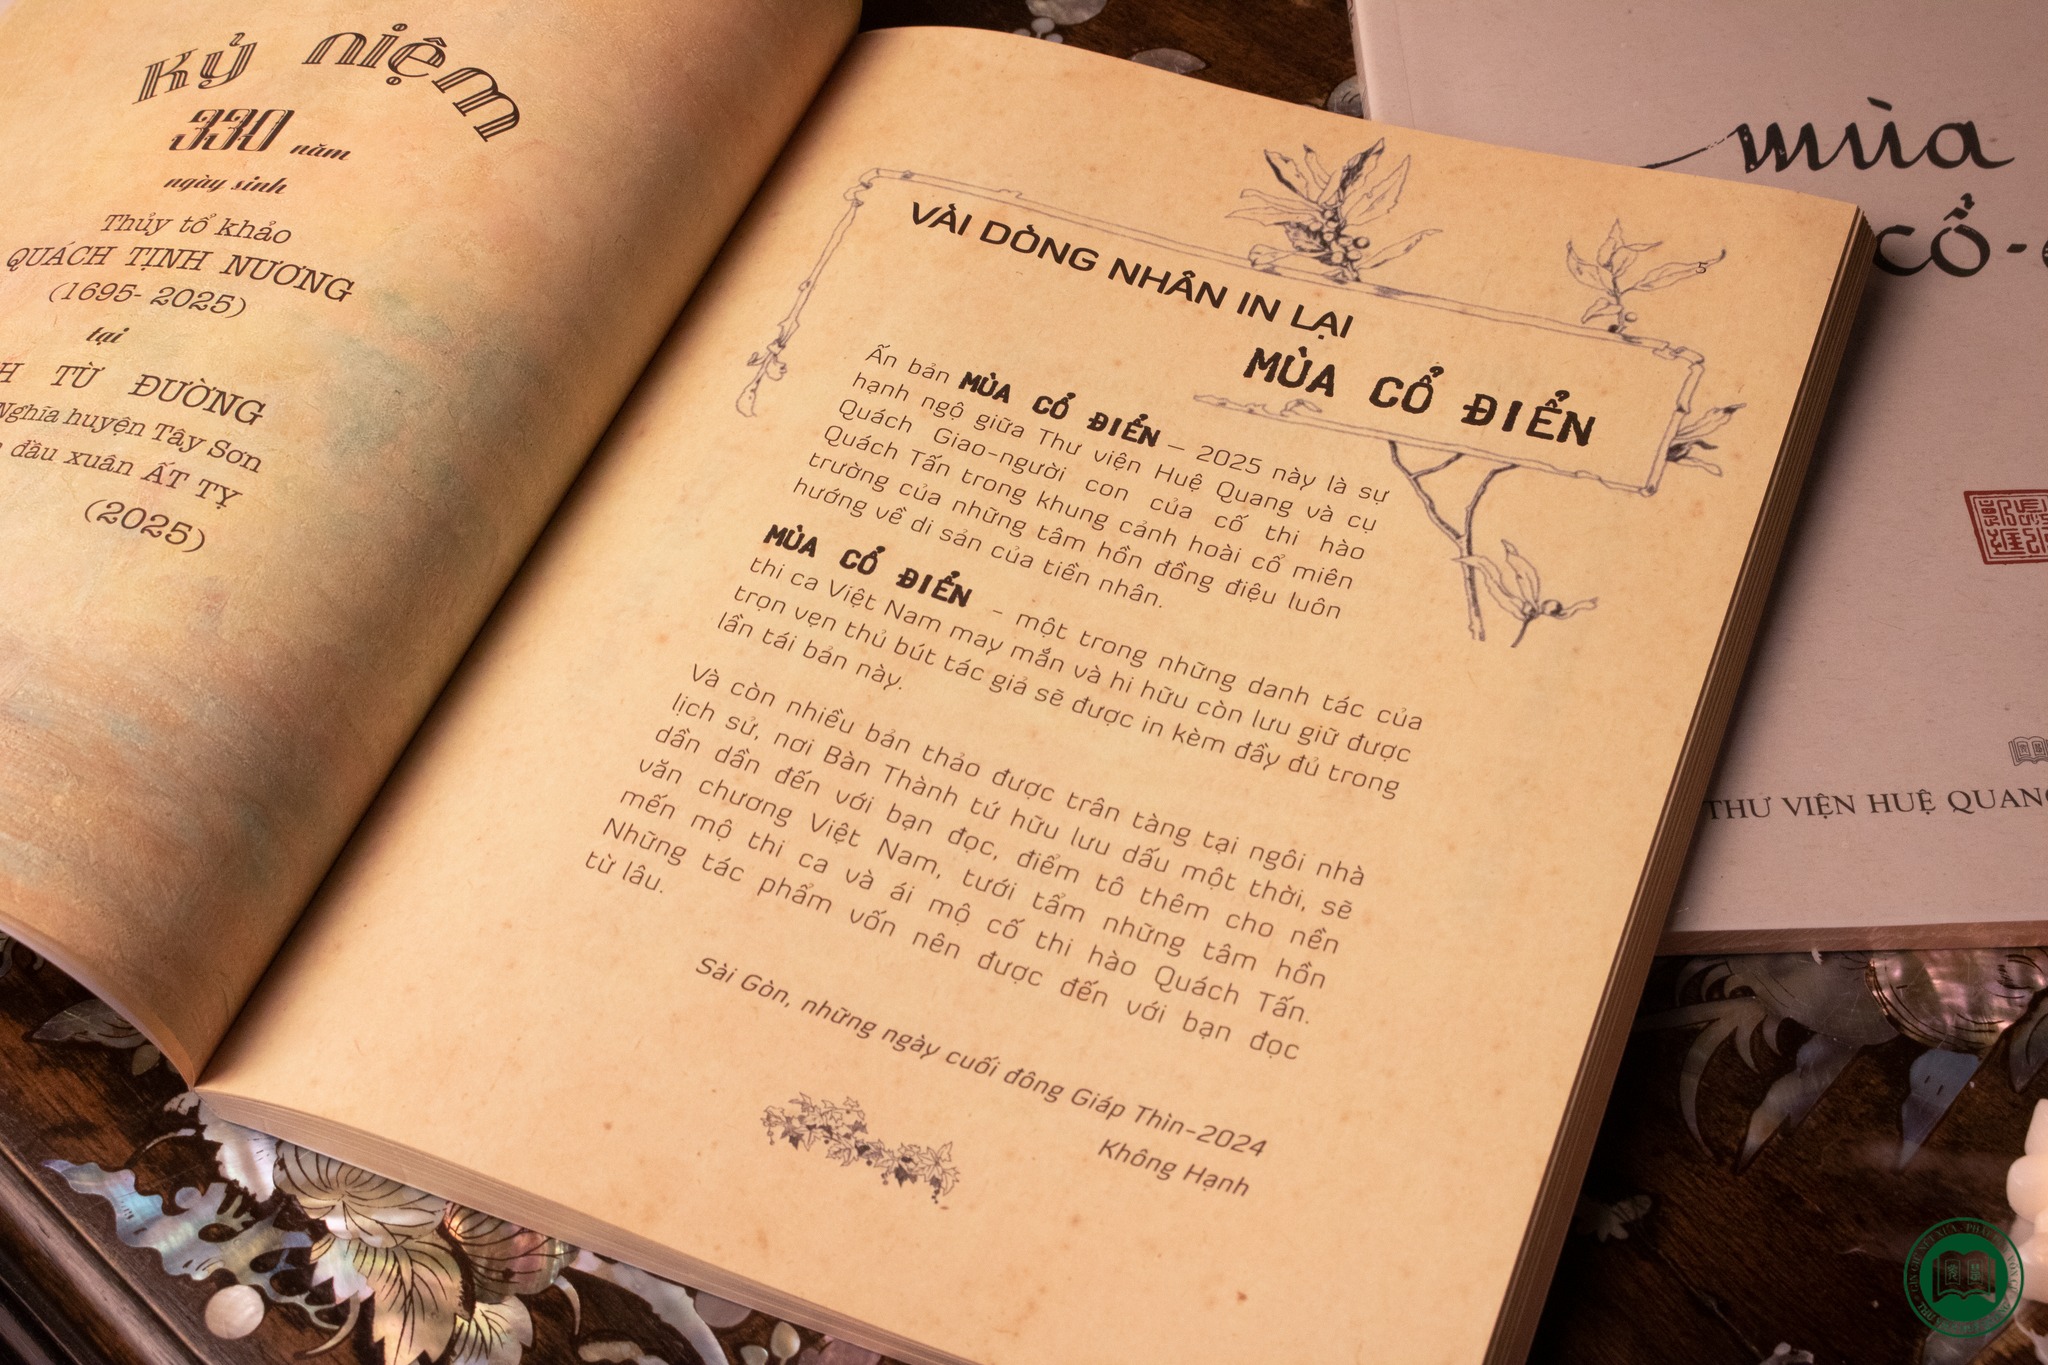 Kỷ niệm
330 năm
ngày sinh
Thủy tổ khảo
QUÁCH TỊNH NƯƠNG
(1695- 2025)
tại
TỪ ĐƯỜNG
Nghĩa huyện Tây Sơn
đầu xuân ẤT TỴ
(2025)
5
VÀI DÒNG NHÂN IN LẠI
MÙA CỔ ĐIỂN
Ấn bản MÙA CỔ ĐIỂN – 2025 này là sự
hạnh ngộ giữa Thư viện Huệ Quang và cụ
Quách Giao-người con của cố thi hào
Quách Tấn trong khung cảnh hoài cổ miên
trường của những tâm hồn đồng điệu luôn
hướng về di sản của tiền nhân.
MÙA CỔ ĐIỂN - một trong những danh tác của
thi ca Việt Nam may mắn và hi hữu còn lưu giữ được
trọn vẹn thủ bút tác giả sẽ được in kèm đầy đủ trong
lần tái bản này.
Và còn nhiều bản thảo được trân tàng tại ngôi nhà
lịch sử, nơi Bàn Thành tứ hữu lưu dấu một thời, sẽ
dần dần đến với bạn đọc, điểm tô thêm cho nền
văn chương Việt Nam, tưới tẩm những tâm hồn
mến mộ thi ca và ái mộ cố thi hào Quách Tấn.
Những tác phẩm vốn nên được đến với bạn đọc
từ lâu.
Sài Gòn, những ngày cuối đông Giáp Thìn-2024
Không Hạnh
mùa
cổ-
THƯ VIỆN HUỆ QUANG